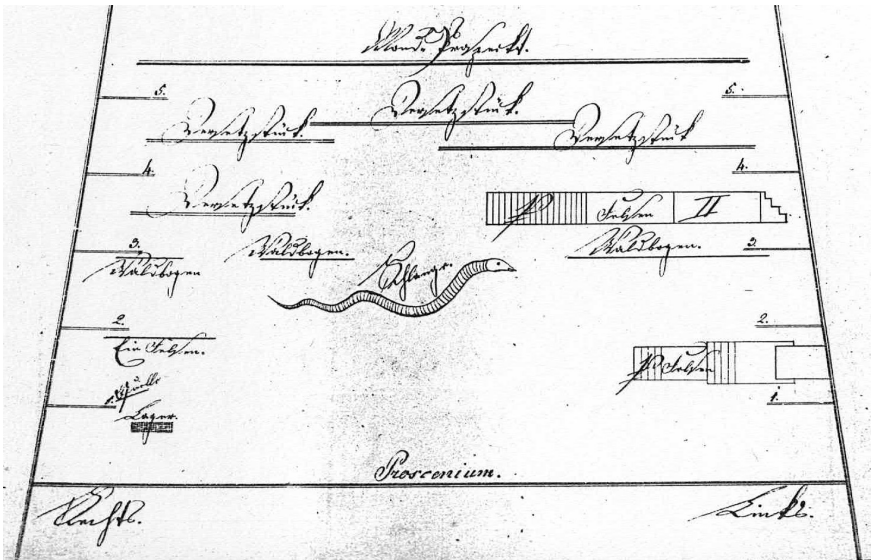 Mond-Prospekt.
5. 5.
Versetzstück.
Versetzstück. Versetzstück
4. 4.
Versetzstück. P Felsen II
3. 3.
Waldbogen Waldbogen. Waldbogen.
Schlange.
2. 2.
Ein Felsen. P Felsen
Quelle
1. 1.
Lager.
Proscenium.
Rechts. Links.